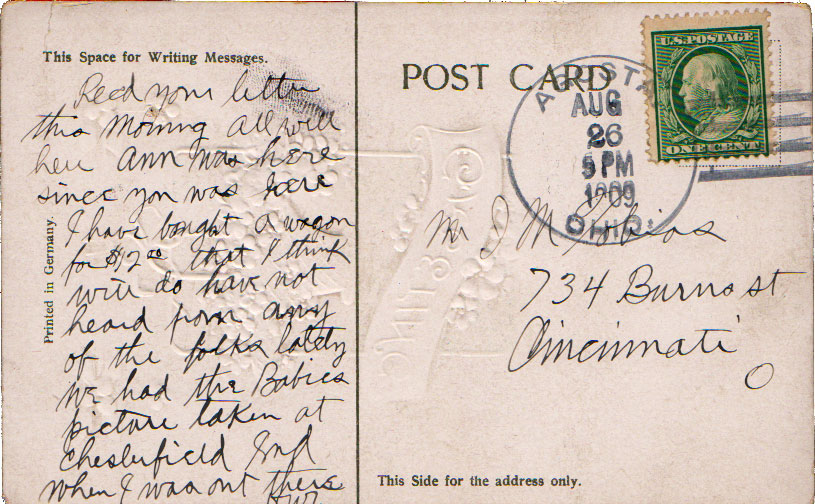 This Space for Writing Messages.
Recd your letter
this morning all well
here Ann was here
since you was here
I have bought a wagon
for $12 00 that I think
will do have not
heard from any
of the folks lately
we had the Babies
picture taken at
Chesterfield Ind
when I was out there
Printed in Germany.
POST CARD
AUGUSTA
AUG
26
5 PM
1909
OHIO.
U.S. POSTAGE
ONE CENT
Mr J M Tobias
734 Burns st
Cincinnati
O
This Side for the address only.